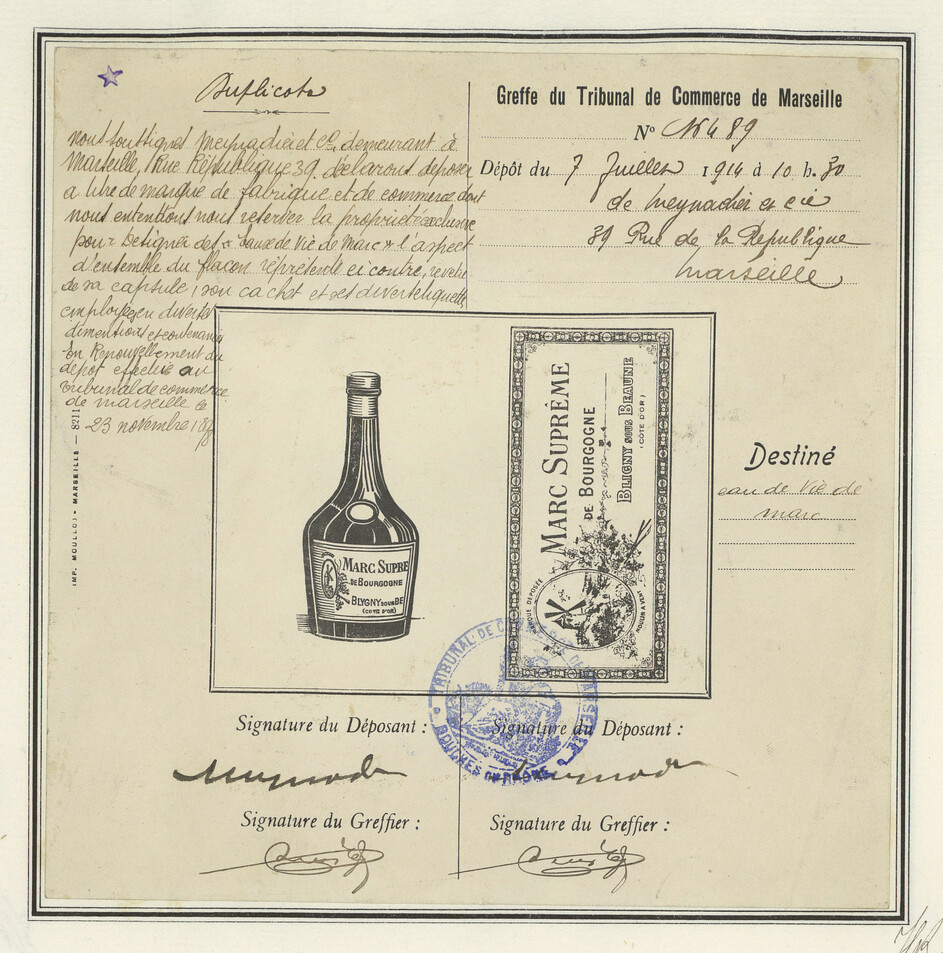 Duplicata
nous soussignés Meynadier et Cie, demeurant à
Marseille, Rue République 39, déclarons déposer
a titre de marque de fabrique et de commerce dont
nous entendons nous reserver la propriété exclusive
pour designer des "eaux de vie de Marc" l'aspect
d'ensemble du flacon représenté ci contre, revetu
de sa capsule, son cachet et ses diverses etiquettes
employées en diverses
dimensions et contenances
En Renouvellement du
dépot effectué au
Tribunal de commerce
de marseille le
23 novembre
Greffe du Tribunal de Commerce de Marseille
N° 489
Dépôt du 7 Juillet 1914 à 10 h. 30
de Meynadier et cie
39 Rue de la République
Marseille
IMP. MOULLOT - MARSEILLE - 8211
MARC SUPRE
DE BOURGOGNE
BLYGNY SOUS BE
(COTE D'OR)
MARC SUPRÊME
DE BOURGOGNE
BLIGNY SOUS BEAUNE
(COTE D'OR)
MARQUE DÉPOSÉE
K
MOULIN A VENT
Destiné
eau de vie de
marc
TRIBUNAL DE COMMERCE DE MARSEILLE
BOUCHES DU RHÔNE
Signature du Déposant :
Signature du Déposant :
Signature du Greffier :
Signature du Greffier :